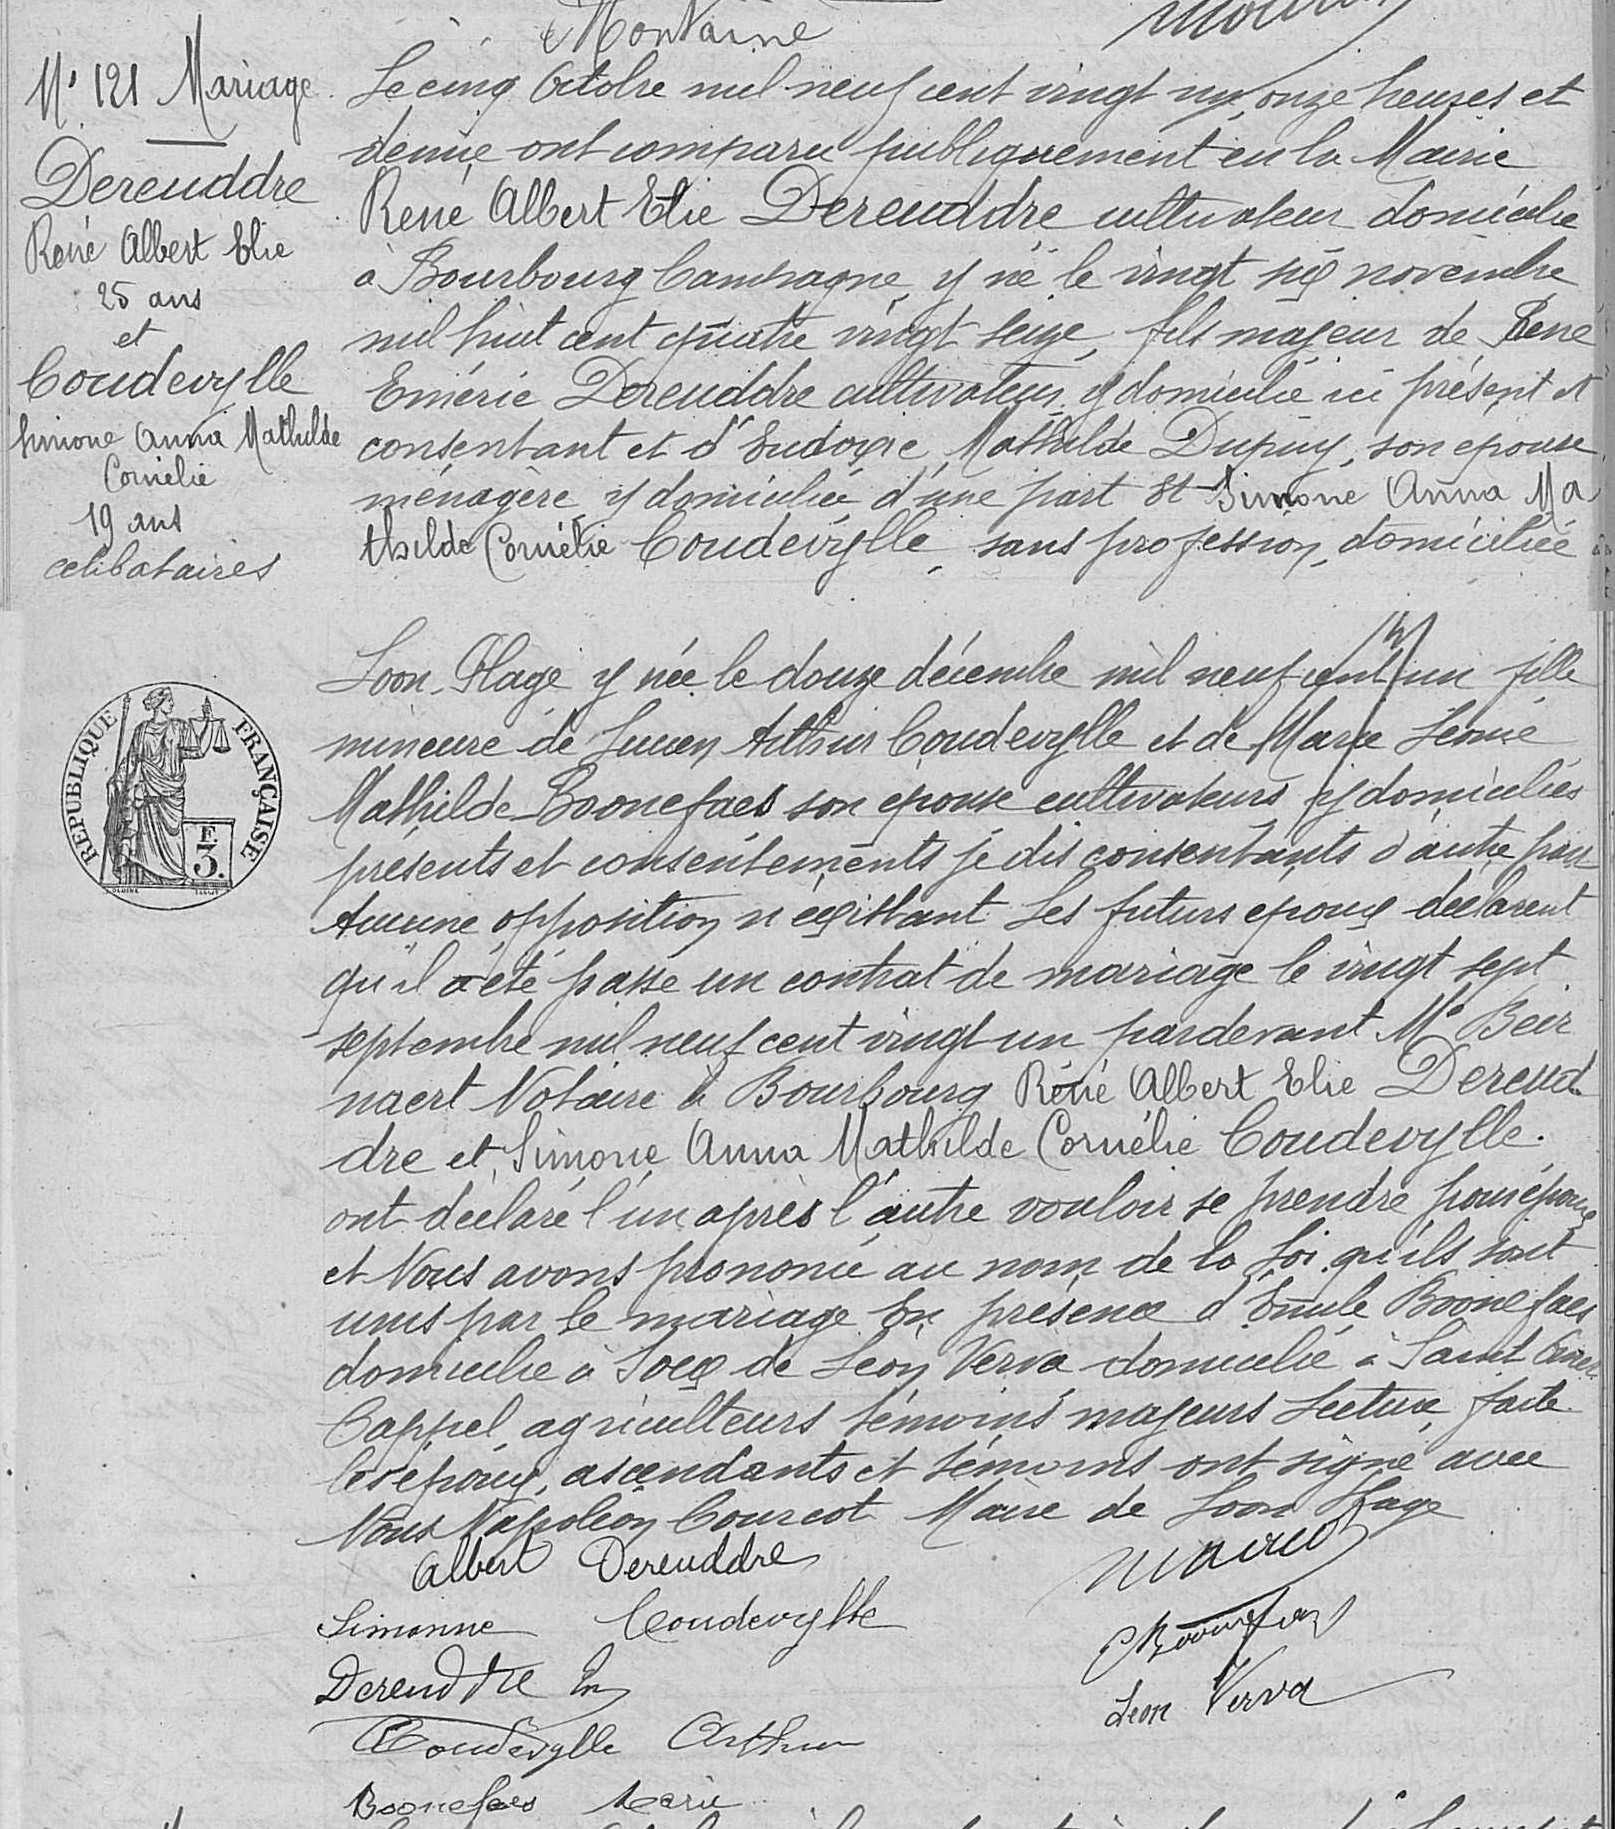 Montaine
N° 121 Mariage
Dereuddre
René Albert Elie
25 ans
et
Coudevylle
Simone Anna Mathilde
Cornélie
19 ans
celibataires
Le cinq Octobre mil neuf cent vingt un onze heures et
demie ont comparu publiquement en la Mairie
René Albert Elie Dereuddre cultivateur domicilié
à Bourbourg Campagne y né le vingt six novembre
mil huit cent quatre vingt seize, fils majeur de René
Emérie Dereuddre cultivateur y domicilié ici présent et
consentant et d'Eudoxie Mathilde Dupuy, son épouse
ménagère y domiciliée d'une part Et Simone Anna Ma
thilde Cornélie Coudevylle, sans profession, domiciliée
Loon-Plage y née le douze décembre mil neuf cent un fille
mineure de Lucien Arthur Coudevylle et de Marie Léonie
Mathilde Boonefaes son épouse cultivateurs y domiciliés
présents et consentements je dis consentants d'autre part
Aucune opposition n'existant Les futurs époux déclarent
qu'il a été passé un contrat de mariage le vingt sept
septembre mil neuf cent vingt un pardevant Me Beir
naert Notaire à Bourbourg René Albert Elie Dereud
dre et Simone Anna Mathilde Cornélie Coudevylle.
ont déclaré l'un après l'autre vouloir se prendre pour époux
et Nous avons prononcé au nom de la Loi qu'ils sont
unis par le mariage En présence d'Emile Boonefaes
domicilié à Socx de Léon Verva domicilié à Saint
Cappel agriculteurs témoins majeurs Lecture faite
les époux, ascendants et témoins ont signé avec
Nous Napoléon Courcot Maire de Loon Plage
REPUBLIQUE FRANÇAISE
F
3.
Albert Dereuddre
Simonne Coudevylle
Dereuddre Em
Coudevylle Arthur
Boonefaes Marie
Boonefaes
Leon Verva